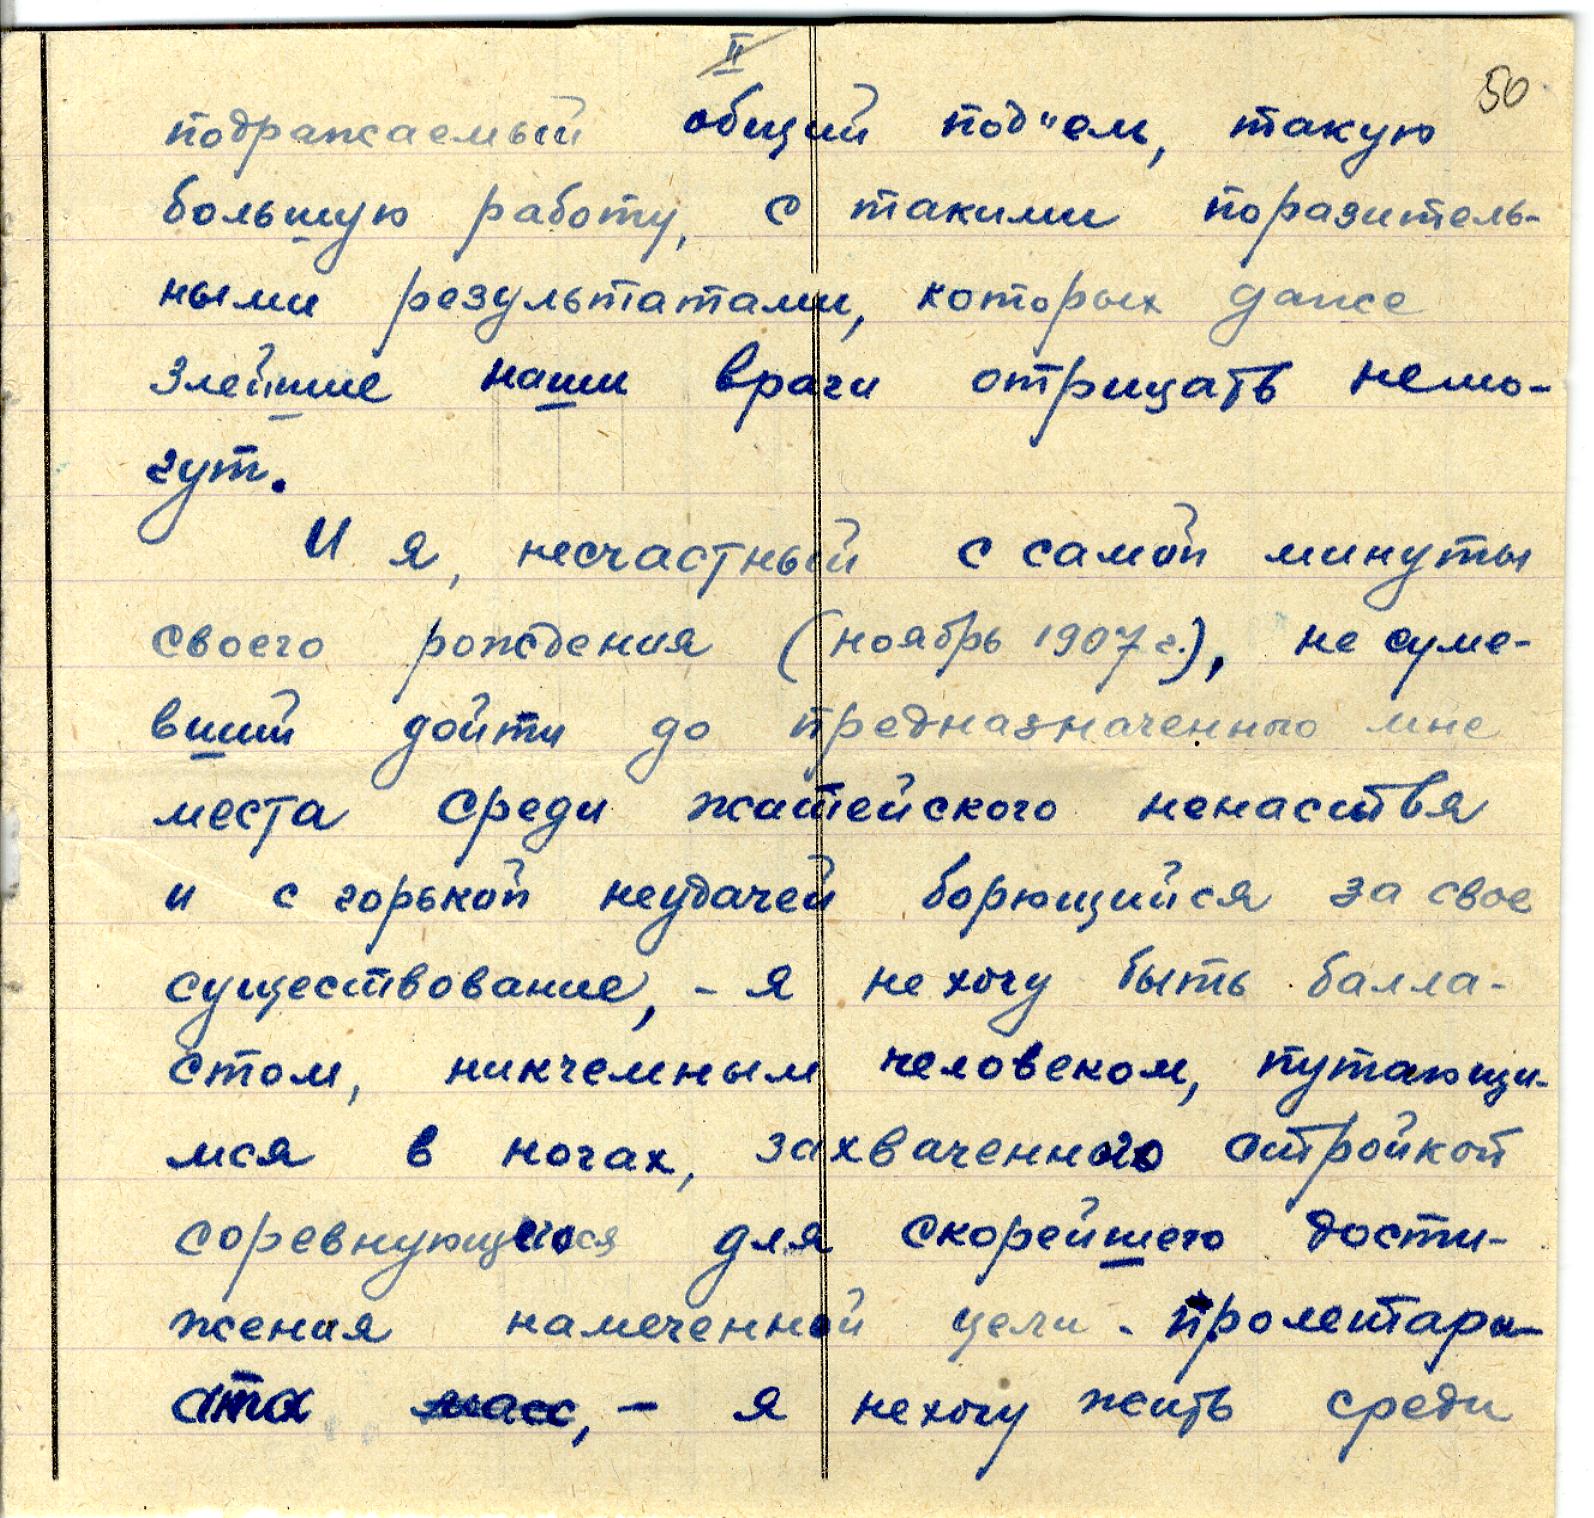 II
50
подражаемый общий под"ем, такую
большую работу, с такими поразитель-
ными результатами, которых даже
злейшие наши враги отрицать немо-
гут.
И я, несчастный с самой минуты
своего рождения (ноябрь 1907 г.), не суме-
вший дойти до предназначенного мне
места среди житейского ненаствя
и с горькой неудачей борющийся за свое
существование, - я не хочу быть балла-
стом, никчемным человеком, путающи-
мся в ногах, захваченного стройкой
соревнующегося для скорейшего дости-
жения намеченной цели - пролетари-
ата масс, - я не хочу жить среди